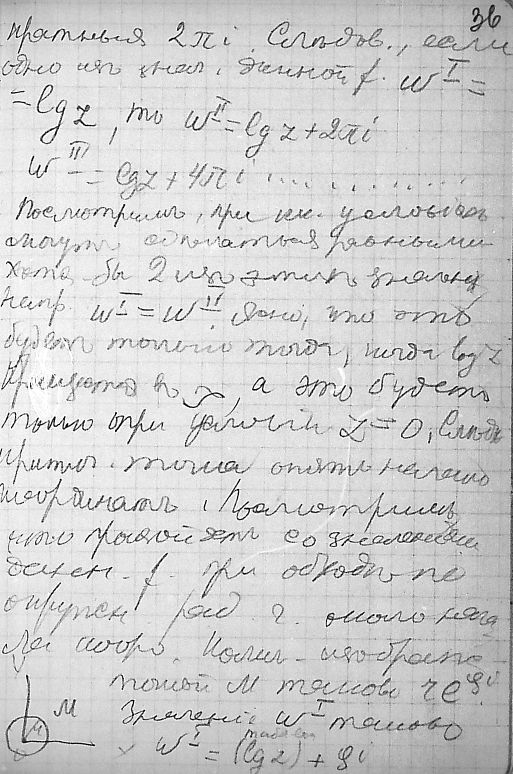 36
кратныя 2πi. Следов., если
одно из знач. данной f. w^I =
= lg z, то w^II = lg z + 2πi
w^III = lg z + 4πi ...........
Посмотримъ, при как. условіяхъ
могутъ сделаться равными
хотя бы 2 изъ этихъ значен.
напр. w^I = w^II. Ясно, что это
будетъ только тогда, когда log z
обращается въ ∞, а это будетъ
только при условіи z = 0. Следов.
критич. точка опять начало
координатъ. Посмотримъ
что произойдетъ со значеніями
данн. f. при обходе по
окружн. рад. r около нача
ла коорд. Компл. изобраз.
точкой M таково re^φi
M Значеніе w^I таково
M w^I = (lg r) + φi